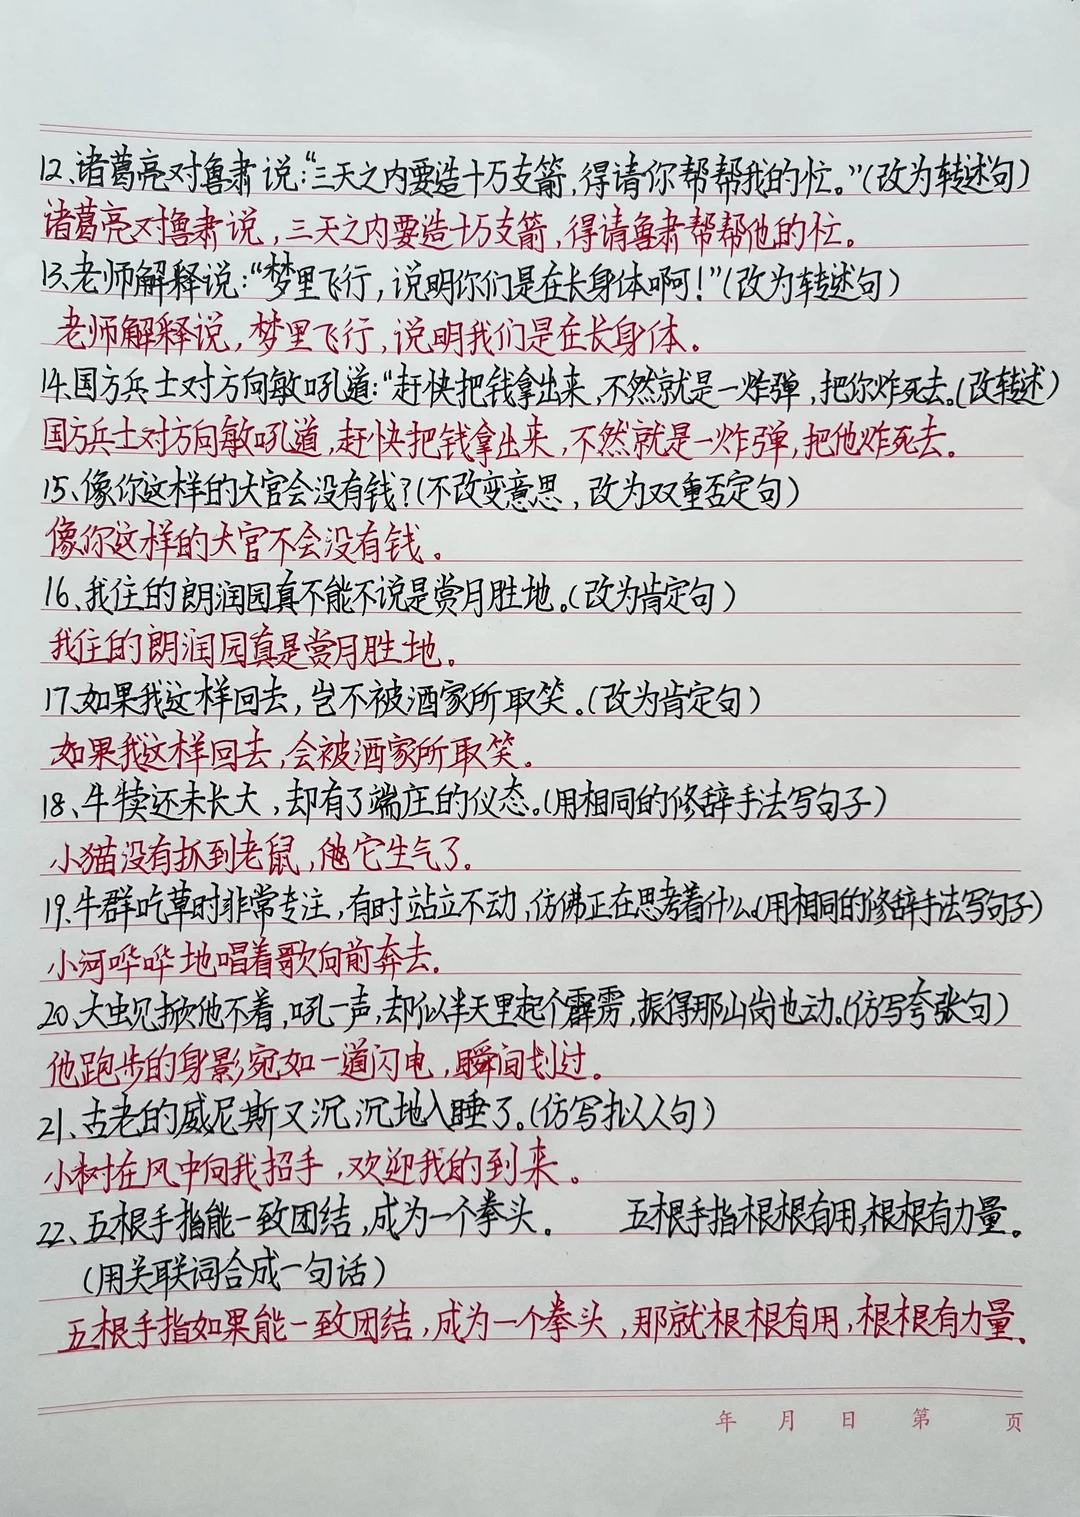 12、诸葛亮对鲁肃说:“三天之内要造十万支箭,得请你帮帮我的忙。”(改为转述句)
诸葛亮对鲁肃说,三天之内要造十万支箭,得请鲁肃帮帮他的忙。
13、老师解释说:“梦里飞行,说明你们是在长身体啊!”(改为转述句)
老师解释说,梦里飞行,说明我们是在长身体。
14、国方兵士对方向敏吼道:“赶快把钱拿出来,不然就是一炸弹,把你炸死去。(改转述)
国方兵士对方向敏吼道,赶快把钱拿出来,不然就是一炸弹,把他炸死去。
15、像你这样的大官会没有钱?(不改变意思,改为双重否定句)
像你这样的大官不会没有钱。
16、我住的朗润园真不能不说是赏月胜地。(改为肯定句)
我住的朗润园真是赏月胜地。
17、如果我这样回去,岂不被酒家所取笑。(改为肯定句)
如果我这样回去,会被酒家所取笑。
18、牛犊还未长大,却有了端庄的仪态。(用相同的修辞手法写句子)
小猫没有抓到老鼠,它生气了。
19、牛群吃草时非常专注,有时站立不动,仿佛正在思考着什么。(用相同的修辞手法写句子)
小河哗哗地唱着歌向前奔去。
20、大虫见掀他不着,吼一声,却似半天里起个霹雳,振得那山岗也动。(仿写夸张句)
他跑步的身影宛如一道闪电,瞬间划过。
21、古老的威尼斯又沉沉地入睡了。(仿写拟人句)
小树在风中向我招手,欢迎我的到来。
22、五根手指能一致团结,成为一个拳头。 五根手指根根有用,根根有力量。
(用关联词合成一句话)
五根手指如果能一致团结,成为一个拳头,那就根根有用,根根有力量。
年 月 日 第 页